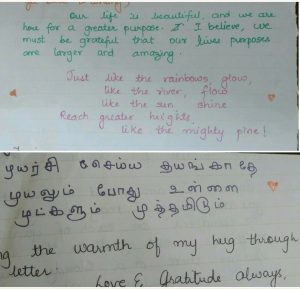 Our life is beautiful, and we are
here for a greater purpose. I believe, we
must be grateful that our lives purposes
are larger and amazing.
Just like the rainbows, glow,
like the river, flow
like the sun shine
Reach greater heights,
like the mighty pine!
முயற்சி செய்ய தயங்காதே
முயலும் போது உன்னை
முட்களும் முத்தமிடும்
the warmth of my hug through
letter.
Love & Gratitude always,